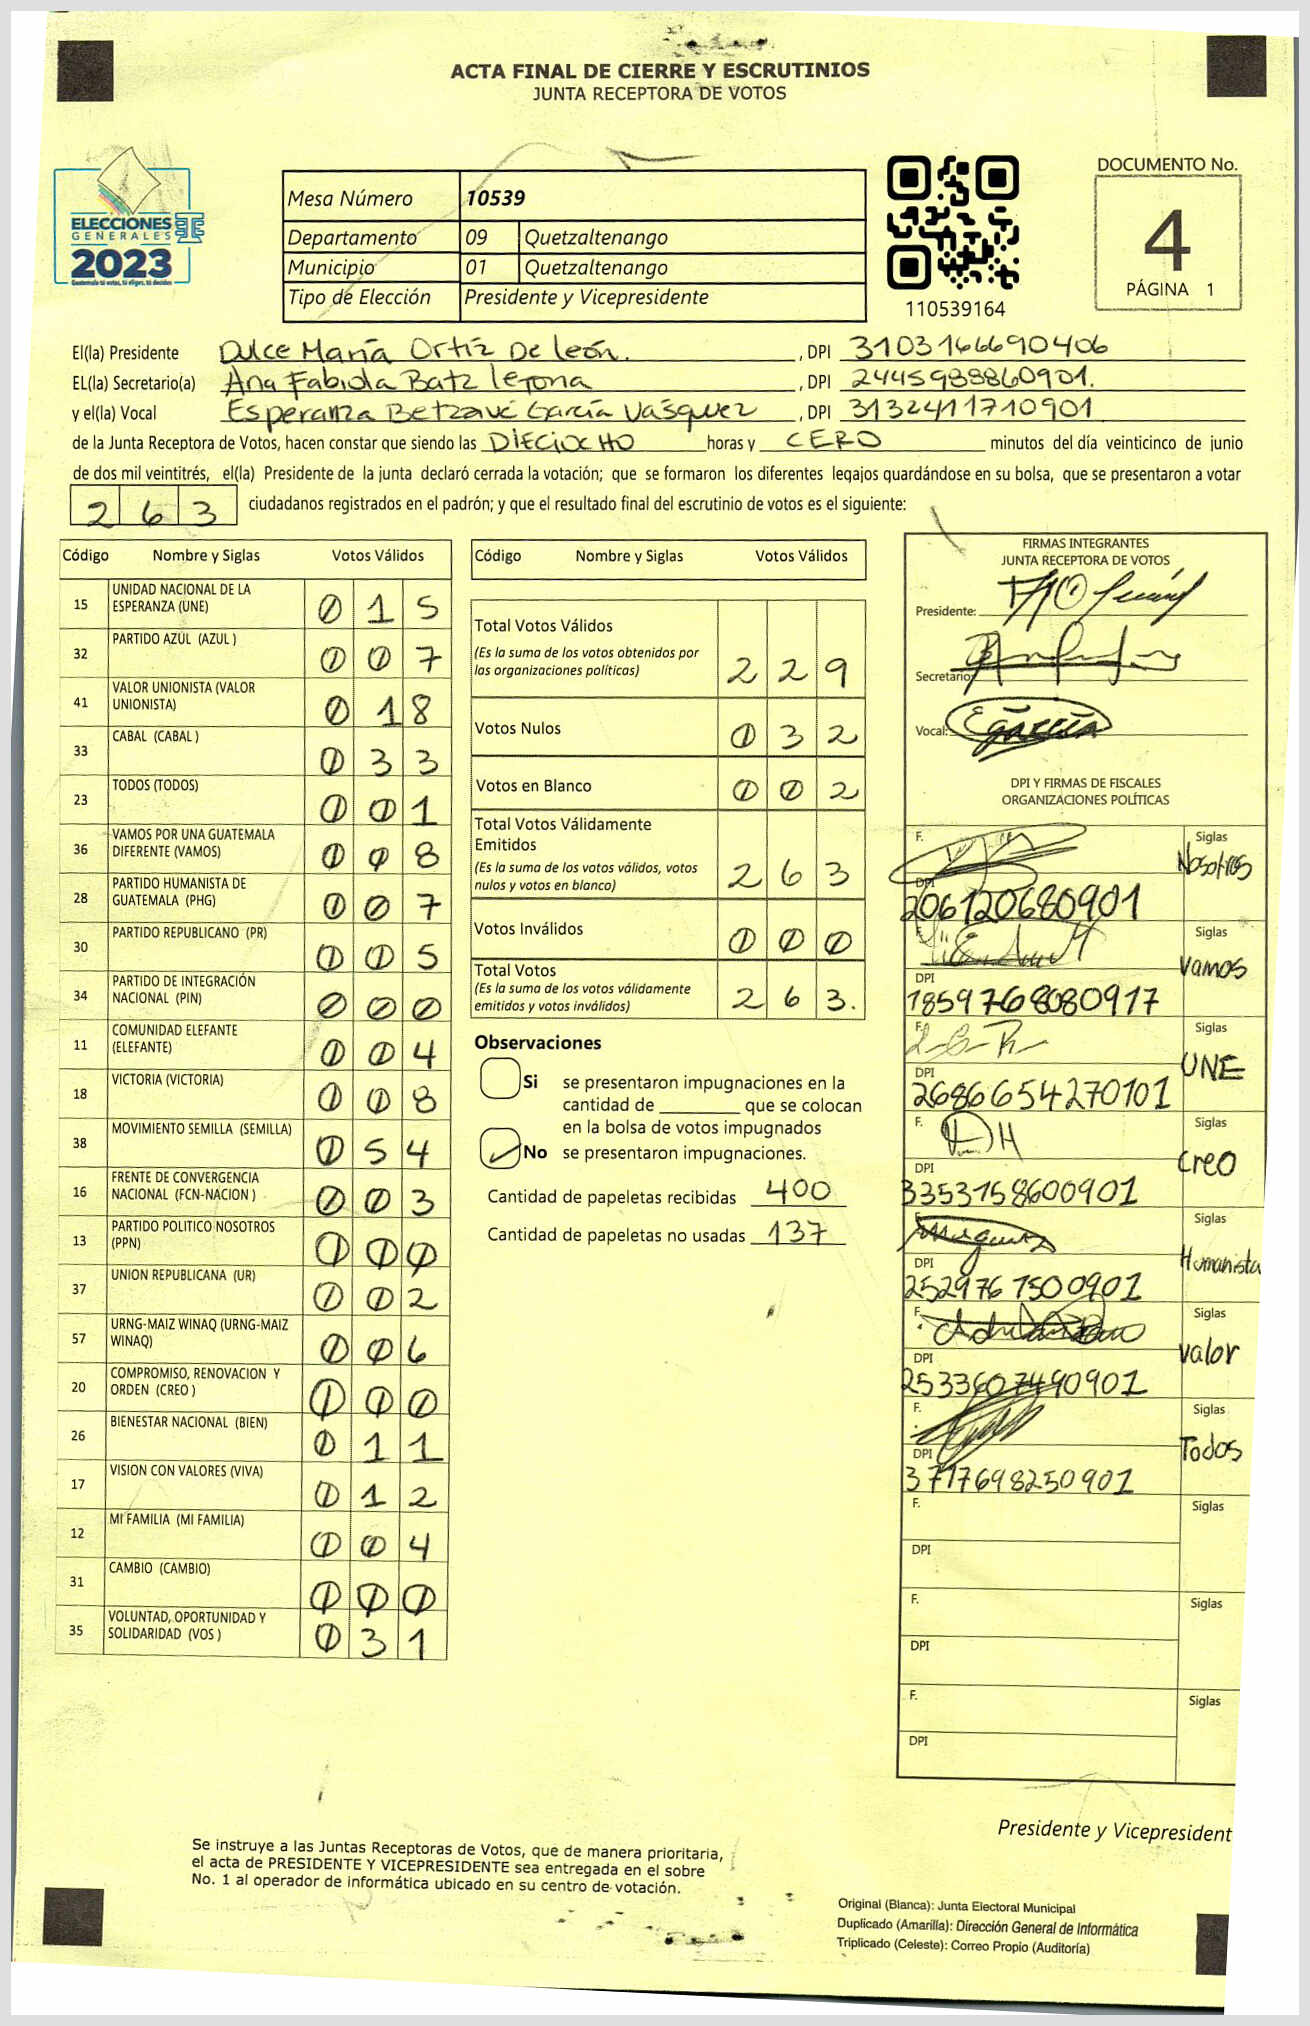 ACTA FINAL DE CIERRE Y ESCRUTINIOS
JUNTA RECEPTORA DE VOTOS
ELECCIONES
GENERALES
2023
Guatemala tú votas, tú eliges, tú decides
Mesa Número 10539
Departamento 09 Quetzaltenango
Municipio 01 Quetzaltenango
Tipo de Elección Presidente y Vicepresidente
110539164
DOCUMENTO No.
4
PÁGINA 1
El(la) Presidente Dulce María Ortíz De león. , DPI 3103166690406
EL(la) Secretario(a) Ana Fabiola Batz lerona , DPI 2445988860901.
y el(la) Vocal Esperanza Betzavé García Vásquez , DPI 3132411710901
de la Junta Receptora de Votos, hacen constar que siendo las DIECIOCHO horas y CERO minutos del día veinticinco de junio
de dos mil veintitrés, el(la) Presidente de la junta declaró cerrada la votación; que se formaron los diferentes legajos guardándose en su bolsa, que se presentaron a votar
263 ciudadanos registrados en el padrón; y que el resultado final del escrutinio de votos es el siguiente:
Código Nombre y Siglas Votos Válidos
15 UNIDAD NACIONAL DE LA ESPERANZA (UNE) 015
32 PARTIDO AZUL (AZUL ) 007
41 VALOR UNIONISTA (VALOR UNIONISTA) 018
33 CABAL (CABAL ) 033
23 TODOS (TODOS) 001
36 VAMOS POR UNA GUATEMALA DIFERENTE (VAMOS) 008
28 PARTIDO HUMANISTA DE GUATEMALA (PHG) 007
30 PARTIDO REPUBLICANO (PR) 005
34 PARTIDO DE INTEGRACIÓN NACIONAL (PIN) 000
11 COMUNIDAD ELEFANTE (ELEFANTE) 004
18 VICTORIA (VICTORIA) 008
38 MOVIMIENTO SEMILLA (SEMILLA) 054
16 FRENTE DE CONVERGENCIA NACIONAL (FCN-NACION ) 003
13 PARTIDO POLITICO NOSOTROS (PPN) 000
37 UNION REPUBLICANA (UR) 002
57 URNG-MAIZ WINAQ (URNG-MAIZ WINAQ) 006
20 COMPROMISO, RENOVACION Y ORDEN (CREO ) 000
26 BIENESTAR NACIONAL (BIEN) 011
17 VISION CON VALORES (VIVA) 012
12 MI FAMILIA (MI FAMILIA) 004
31 CAMBIO (CAMBIO) 000
35 VOLUNTAD, OPORTUNIDAD Y SOLIDARIDAD (VOS ) 031
Código Nombre y Siglas Votos Válidos
Total Votos Válidos
(Es la suma de los votos obtenidos por
las organizaciones políticas) 229
Votos Nulos 032
Votos en Blanco 002
Total Votos Válidamente
Emitidos
(Es la suma de los votos válidos, votos
nulos y votos en blanco) 263
Votos Inválidos 000
Total Votos
(Es la suma de los votos válidamente
emitidos y votos inválidos) 263.
Observaciones
Si se presentaron impugnaciones en la
cantidad de ________ que se colocan
en la bolsa de votos impugnados
No se presentaron impugnaciones.
Cantidad de papeletas recibidas 400
Cantidad de papeletas no usadas 137
FIRMAS INTEGRANTES
JUNTA RECEPTORA DE VOTOS
Presidente:
Secretario:
Vocal: EGarcía
DPI Y FIRMAS DE FISCALES
ORGANIZACIONES POLÍTICAS
F. Siglas
Nosotros
DPI
206120680901
F. Siglas
Vamos
DPI
1859768080917
F. Siglas
UNE
DPI
2686654270101
F. Siglas
Creo
DPI
3353158600901
F. Siglas
Humanista
DPI
2529761500901
F. Siglas
Valor
DPI
2533607490901
F. Siglas
Todos
DPI
3717698250901
F. Siglas
DPI
F. Siglas
DPI
F. Siglas
DPI
Presidente y Vicepresident
Se instruye a las Juntas Receptoras de Votos, que de manera prioritaria,
el acta de PRESIDENTE Y VICEPRESIDENTE sea entregada en el sobre
No. 1 al operador de informática ubicado en su centro de votación.
Original (Blanca): Junta Electoral Municipal
Duplicado (Amarilla): Dirección General de Informática
Triplicado (Celeste): Correo Propio (Auditoría)